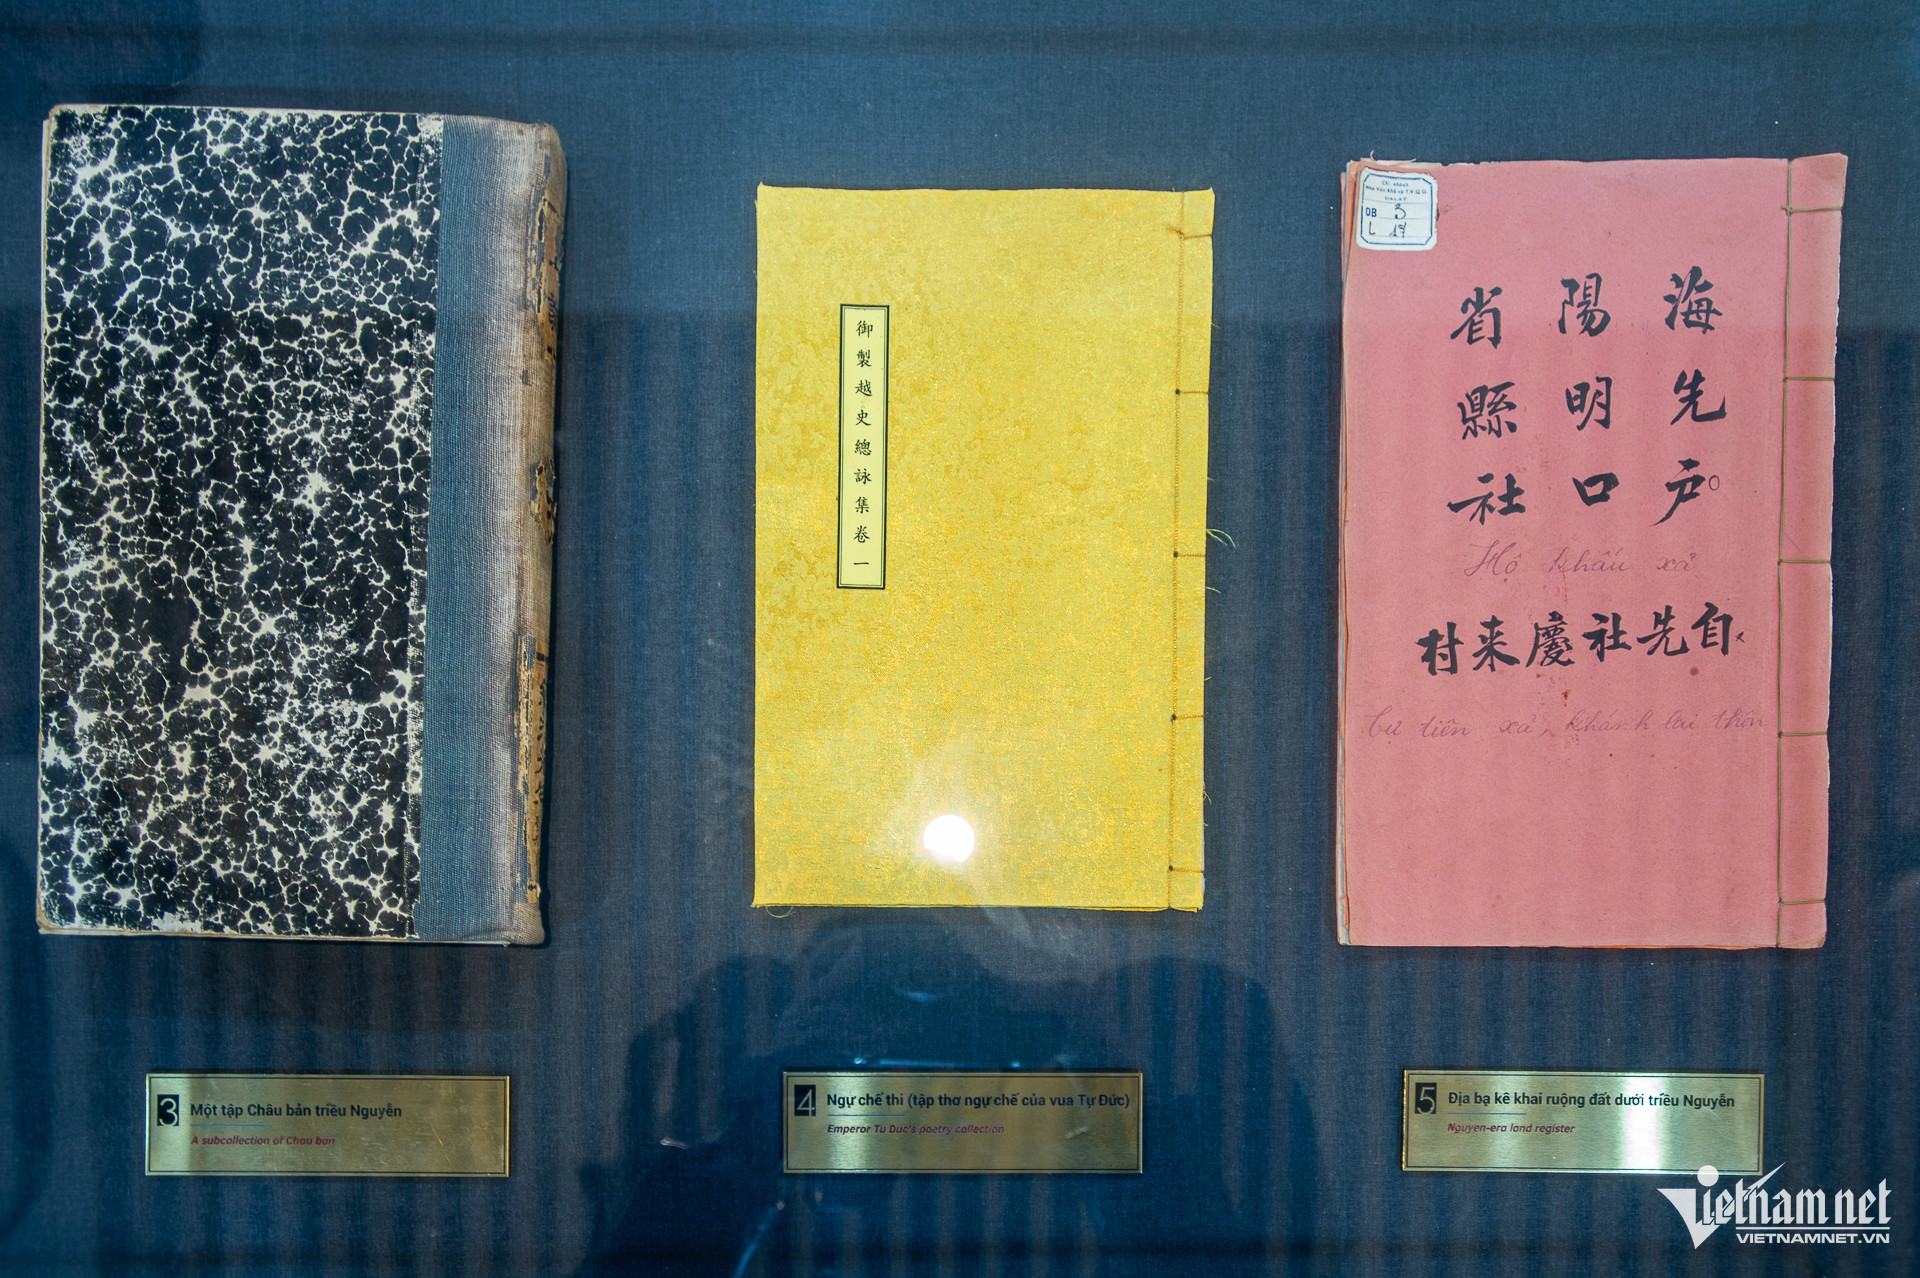 御製越史總詠集卷一
Chi nhánh
DALAT
OB 3
L 17
海陽省
先明縣
户口社
Hộ khẩu xã
自先社慶来村
Cự tiên xã, khánh lai thôn
3 Một tập Châu bản triều Nguyễn
A subcollection of Chau ban
4 Ngự chế thi (tập thơ ngự chế của vua Tự Đức)
Emperor Tu Duc's poetry collection
5 Địa bạ kê khai ruộng đất dưới triều Nguyễn
Nguyen-era land register
Vietnamnet
VIETNAMNET.VN